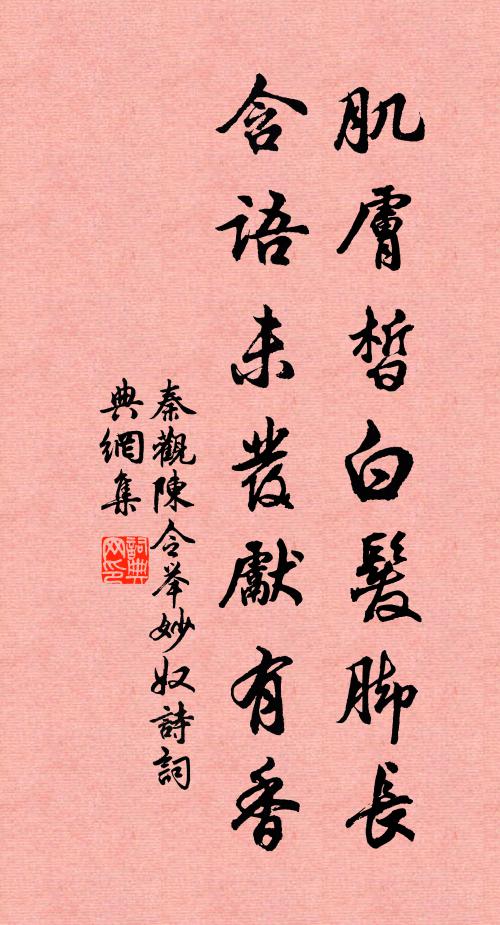 肌膚皙白髮脚長
含語未發獻有香
秦觀陳令举妙奴詩詞
典網集
詞典
网印